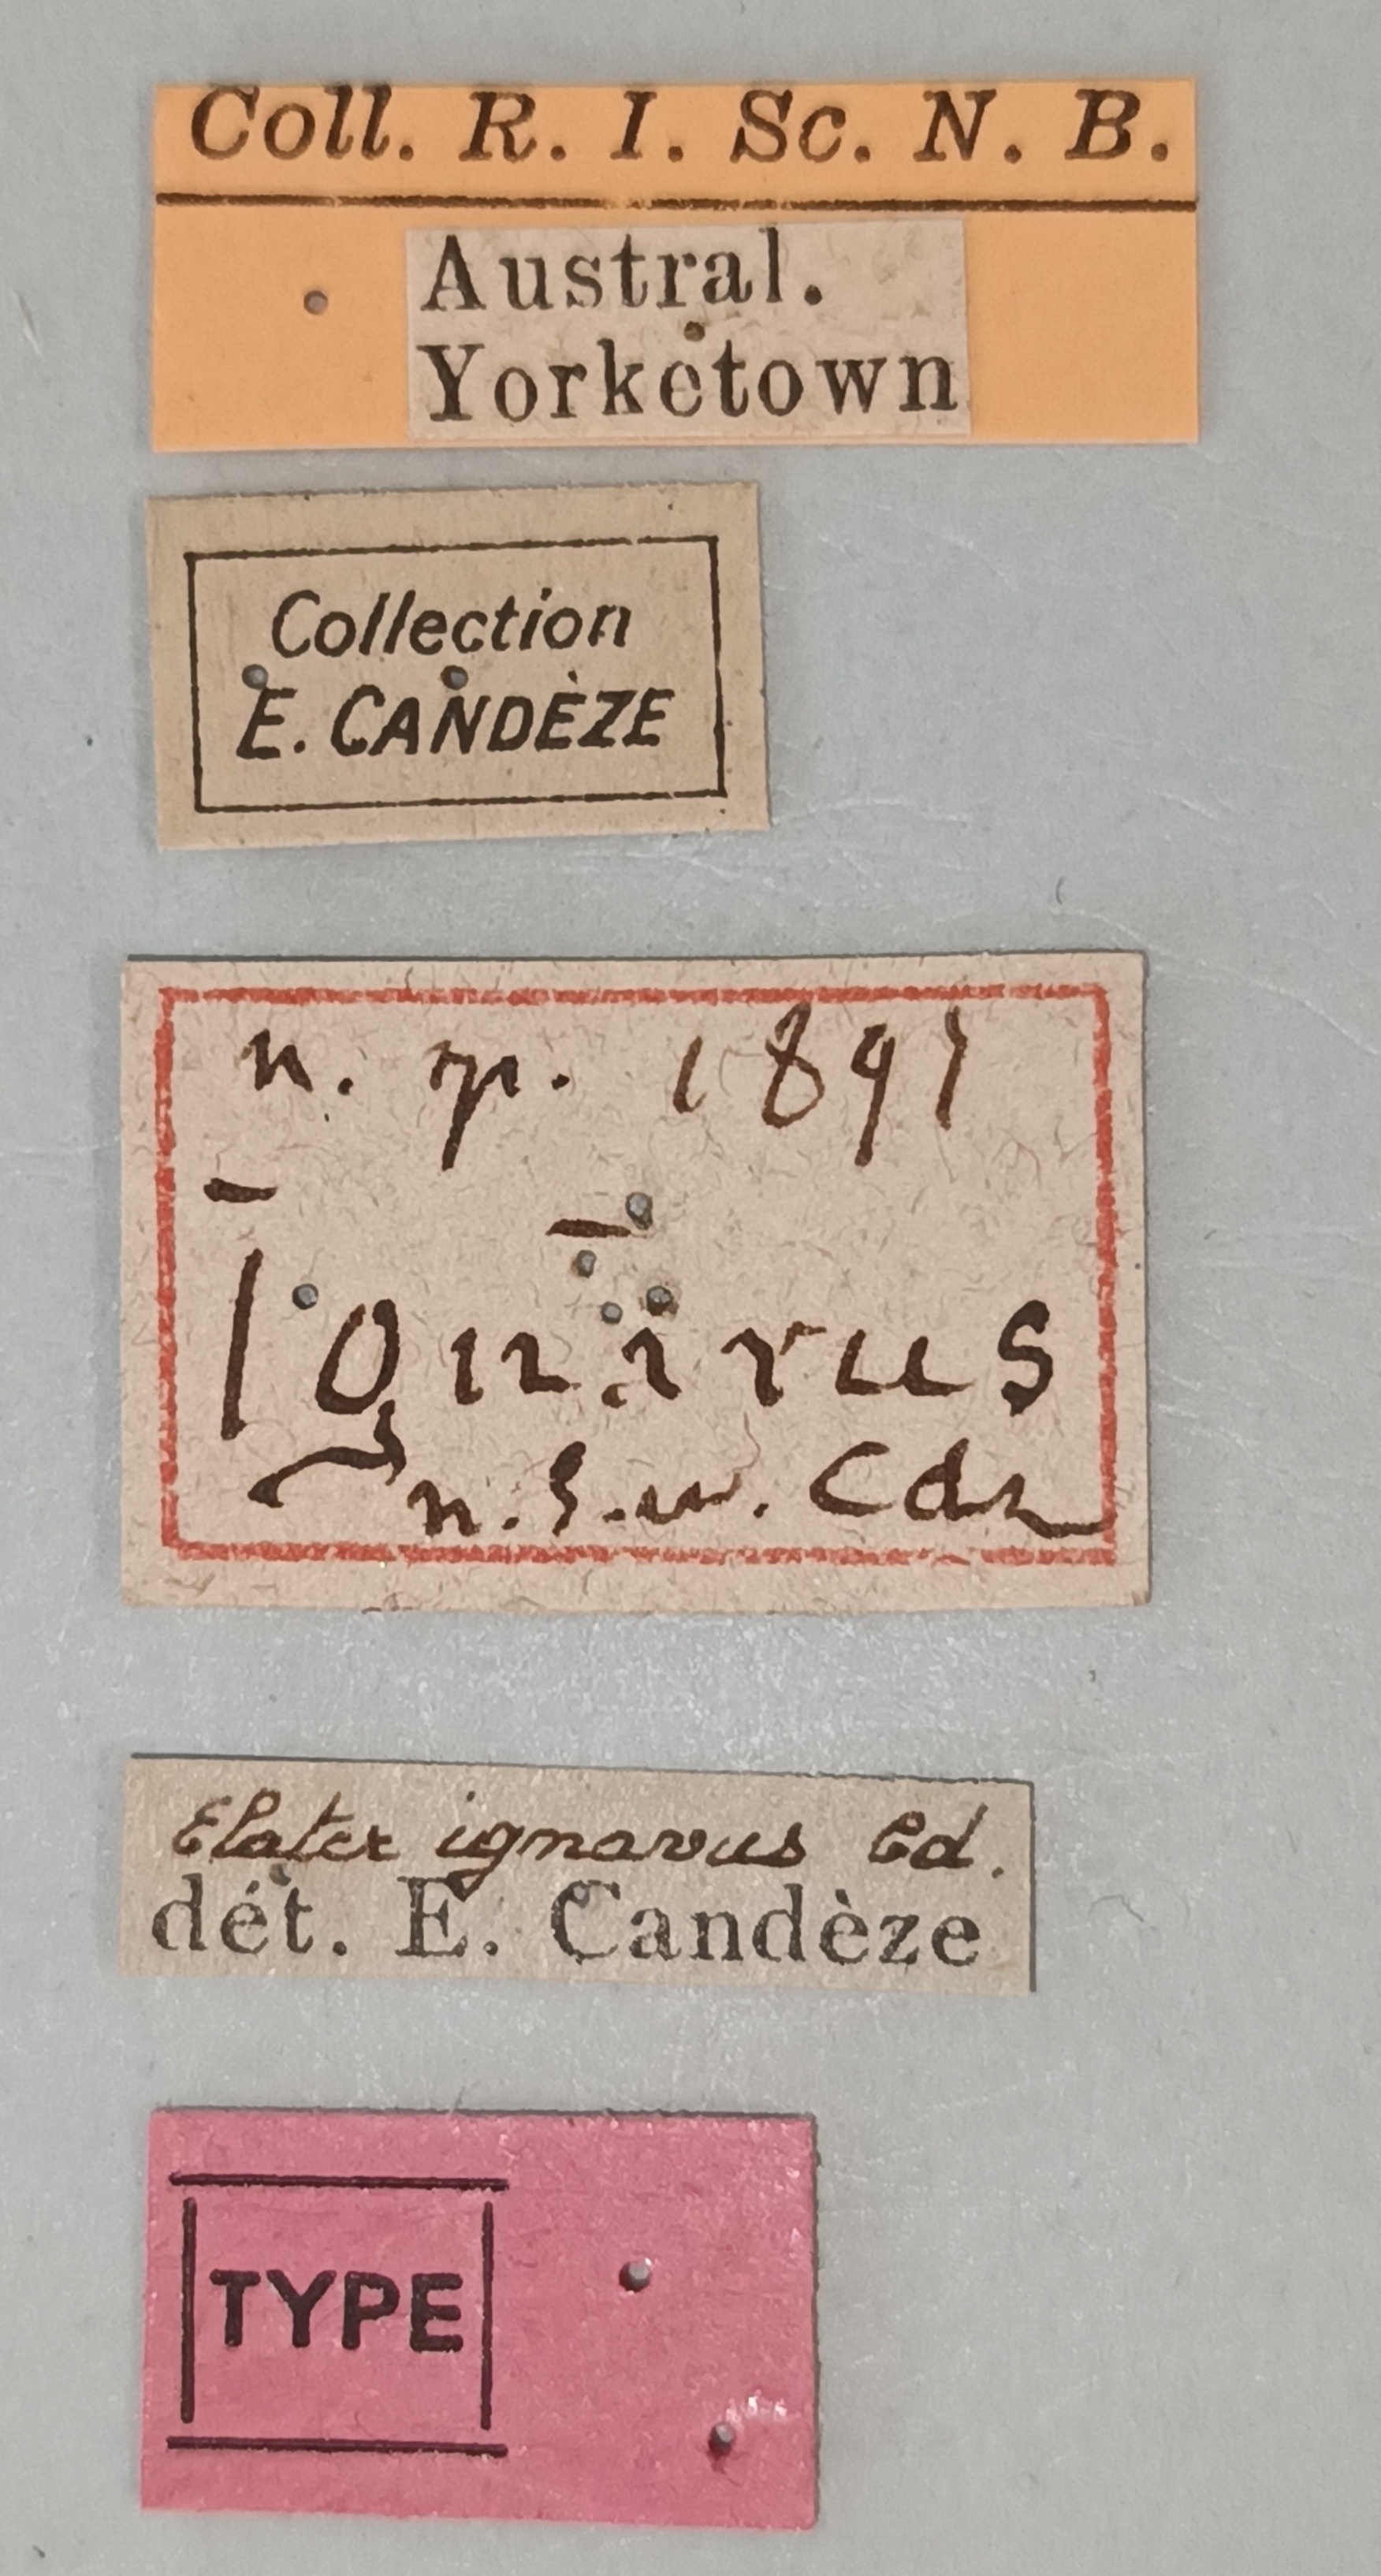 Coll. R. I. Sc. N. B.
Austral.
Yorketown
Collection
E. CANDÈZE
n. sp. 1891
Ignavus
n.S.w. Cdz
Elater ignavus Cd.
dét. E. Candèze
TYPE